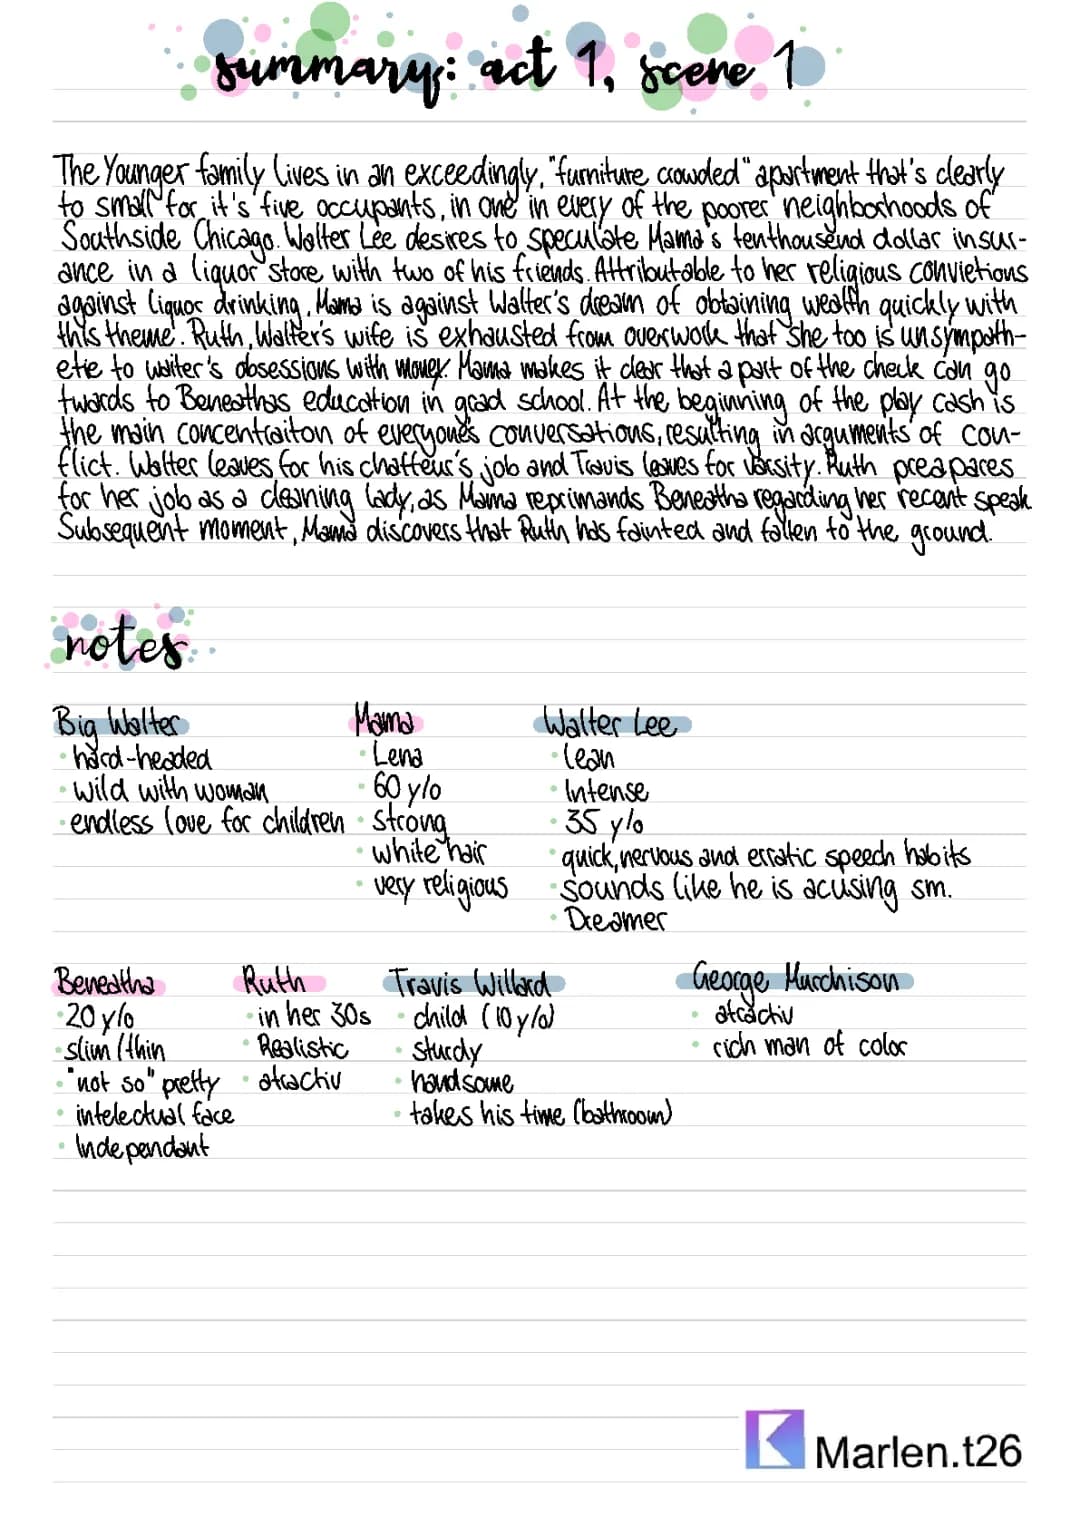 summary: act 1, scene 1
The Younger family lives in an exceedingly, "furniture crowded" apartment that's clearly
to small for it's five occupants, in one in every of the poorer neighborhoods of
Southside Chicago. Walter Lee desires to speculate Mama's tenthousend dollar insur-
ance in a liquor store with two of his friends. Attributable to her religious convietions
against liquor drinking, Mama is against Walter's dream of obtaining wealth quickly with
this theme. Ruth, Walter's wife is exhausted from overwork that she too is unsympath-
etie to walter's obsessions with money. Mama makes it clear that a part of the check can go
twards to Beneathas education in grad school. At the beginning of the play cash is
the main concentraiton of everyone's conversations, resulting in arguments of con-
flict. Walter leaves for his chaffeur's job and Travis leaves for varsity. Ruth preapares
for her job as a cleaning lady, as Mama reprimands Beneatha regarding her recent speak.
Subsequent moment, Mama discovers that Ruth has fainted and fallen to the ground.
notes
Big Walter
· hard-headed
· wild with woman
· endless love for children
Mama
· Lena
· 60 y/o
· strong
· white hair
· very religious
Walter Lee
· lean
· Intense
· 35 y/o
· quick, nervous and erratic speech habits
· sounds like he is acusing sm.
· Dreamer
Beneatha
· 20 y/o
· slim / thin
· "not so" pretty
· intelectual face
· Independant
Ruth
· in her 30s
· Realistic
· atractiv
Travis Willard
· child (10 y/o)
· sturdy
· handsome
· takes his time (bathroom)
George Murchison
· atractiv
· rich man of color
Marlen.t26